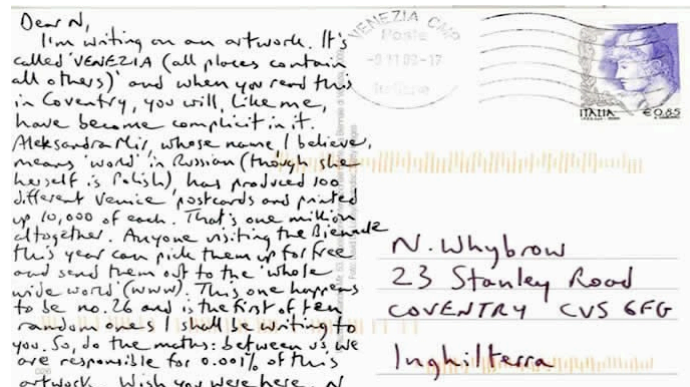 Dear N,
I'm writing on an artwork. It's
called 'VENEZIA (all places contain
all others)' and when you read this
in Coventry, you will, like me,
have become complicit in it.
Aleksandra Mir, whose name, I believe,
means 'world' in Russian (though she
herself is Polish) has produced 100
different Venice postcards and printed
up 10,000 of each. That's one million
altogether. Anyone visiting the Biennale
this year can pick them up for free
and send them out to the 'whole
wide world' (www). This one happens
to be no. 26 and is the first of ten
random ones I shall be writing to
you. So, do the maths: between us we
are responsible for 0.001% of this
artwork. Wish you were here. N
VENEZIA CMP
Poste
Italiane
ITALIA €0,85
N. Whybrow
23 Stanley Road
COVENTRY CV5 6FG
Inghilterra